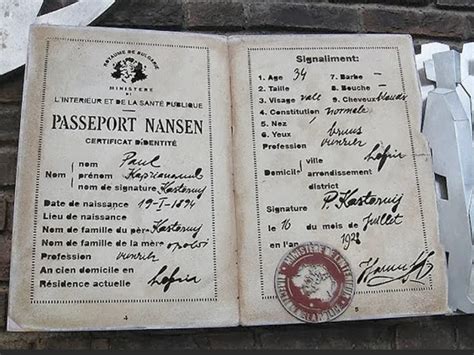 ROYAUME DE BULGARIE
MINISTERE
DE
L'INTERIEUR ET DE LA SANTÉ PUBLIQUE
PASSEPORT NANSEN
CERTIFICAT D'IDENTITÉ
nom Paul
Nom prénom
nom de signature Kasterny
Date de naissance 19-I-1894
Lieu de naissance
Nom de famille du père Kasterny
Nom de famille de la mère
Profession ouvrier
An cien domicile en
Résidence actuelle Sofia
4
Signaliment:
1. Age 34
2. Taille
3. Visage vale
4. Constitution normale
5. Nez
6. Yeux bruns
7. Barbe –
8. Bouche –
9. Cheveux
Profession ouvrier
ville Sofia
Domicile arrondissement
district
Signature P. Kasterny
le 16 du mois de Juillet
en l'an 1928
5